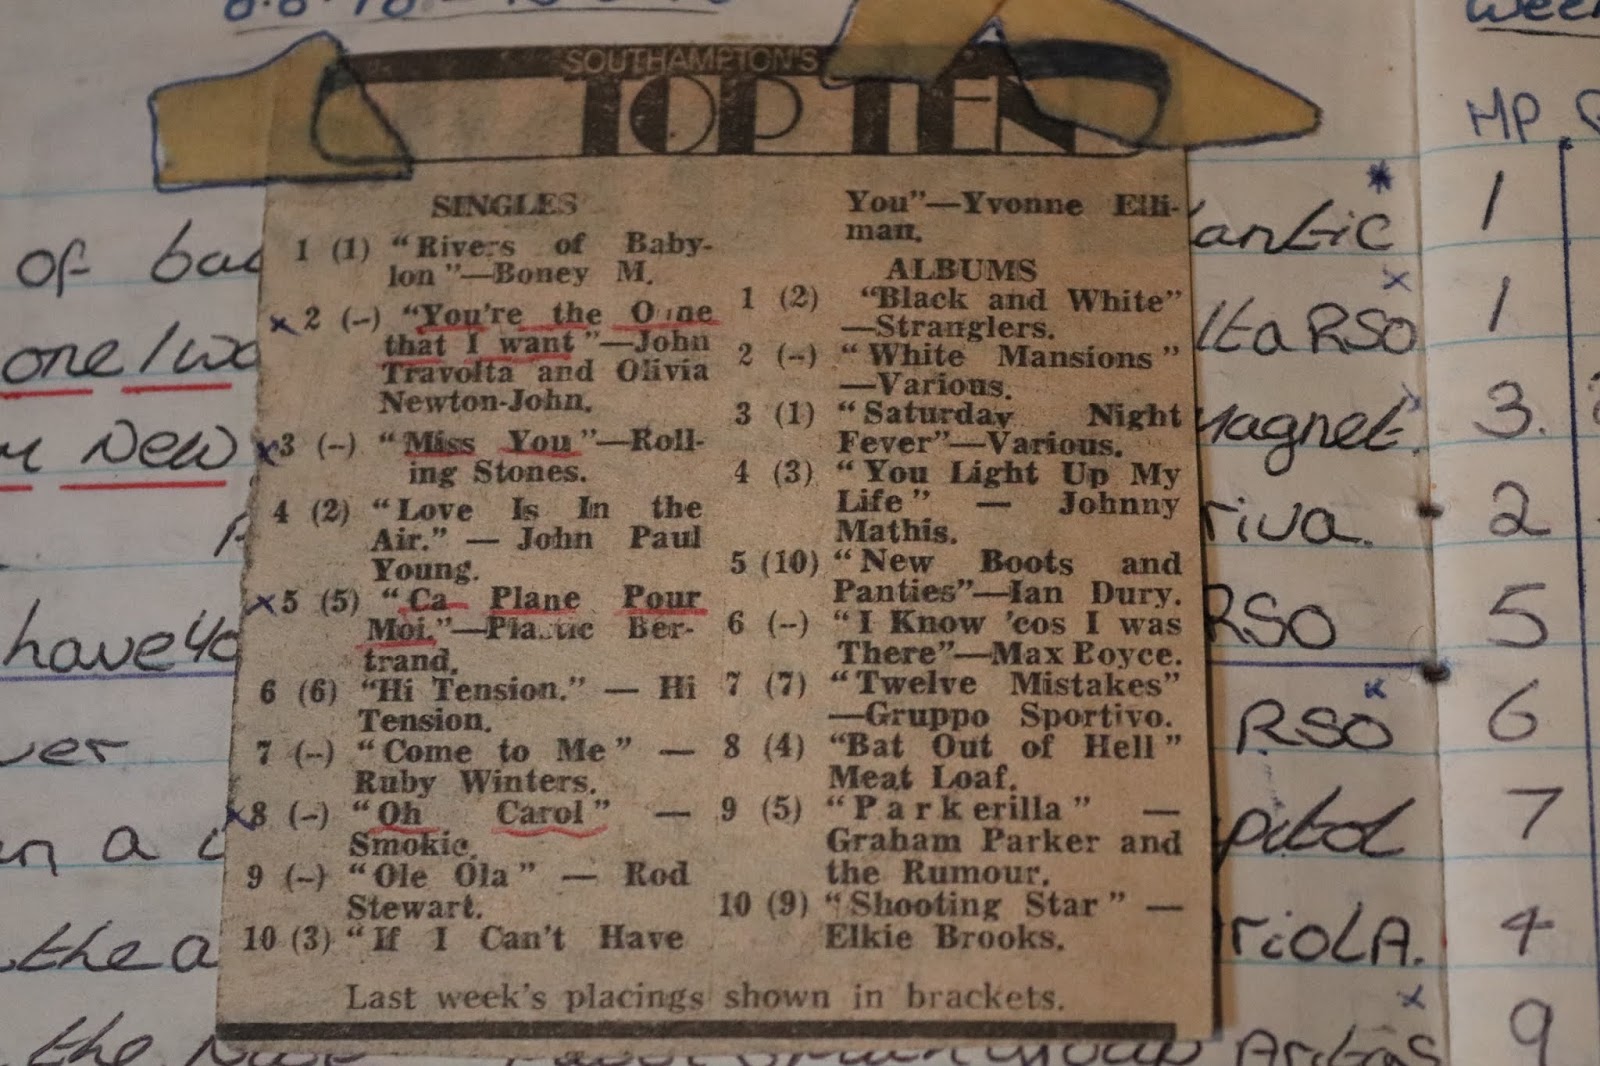 SOUTHAMPTON'S
TOP TEN
SINGLES
1 (1) "Rivers of Baby-
lon"—Boney M.
x 2 (–) "You're the One
that I want"—John
Travolta and Olivia
Newton-John.
x 3 (–) "Miss You"—Roll-
ing Stones.
4 (2) "Love Is In the
Air." — John Paul
Young.
x 5 (5) "Ca Plane Pour
Moi."—Plastic Ber-
trand.
6 (6) "Hi Tension." — Hi
Tension.
7 (–) "Come to Me" —
Ruby Winters.
x 8 (–) "Oh Carol" —
Smokie.
9 (–) "Ole Ola" — Rod
Stewart.
10 (3) "If I Can't Have
You"—Yvonne Elli-
man.
ALBUMS
1 (2) "Black and White"
—Stranglers.
2 (–) "White Mansions"
—Various.
3 (1) "Saturday Night
Fever"—Various.
4 (3) "You Light Up My
Life" — Johnny
Mathis.
5 (10) "New Boots and
Panties"—Ian Dury.
6 (–) "I Know 'cos I was
There"—Max Boyce.
7 (7) "Twelve Mistakes"
—Gruppo Sportivo.
8 (4) "Bat Out of Hell"
Meat Loaf.
9 (5) "Parkerilla" —
Graham Parker and
the Rumour.
10 (9) "Shooting Star" —
Elkie Brooks.
Last week's placings shown in brackets.
of
one I
New
have
the
the
antic
RSO
agnet.
RSO
RSO
MP
1
1
3.
2
5
6
7
4
9